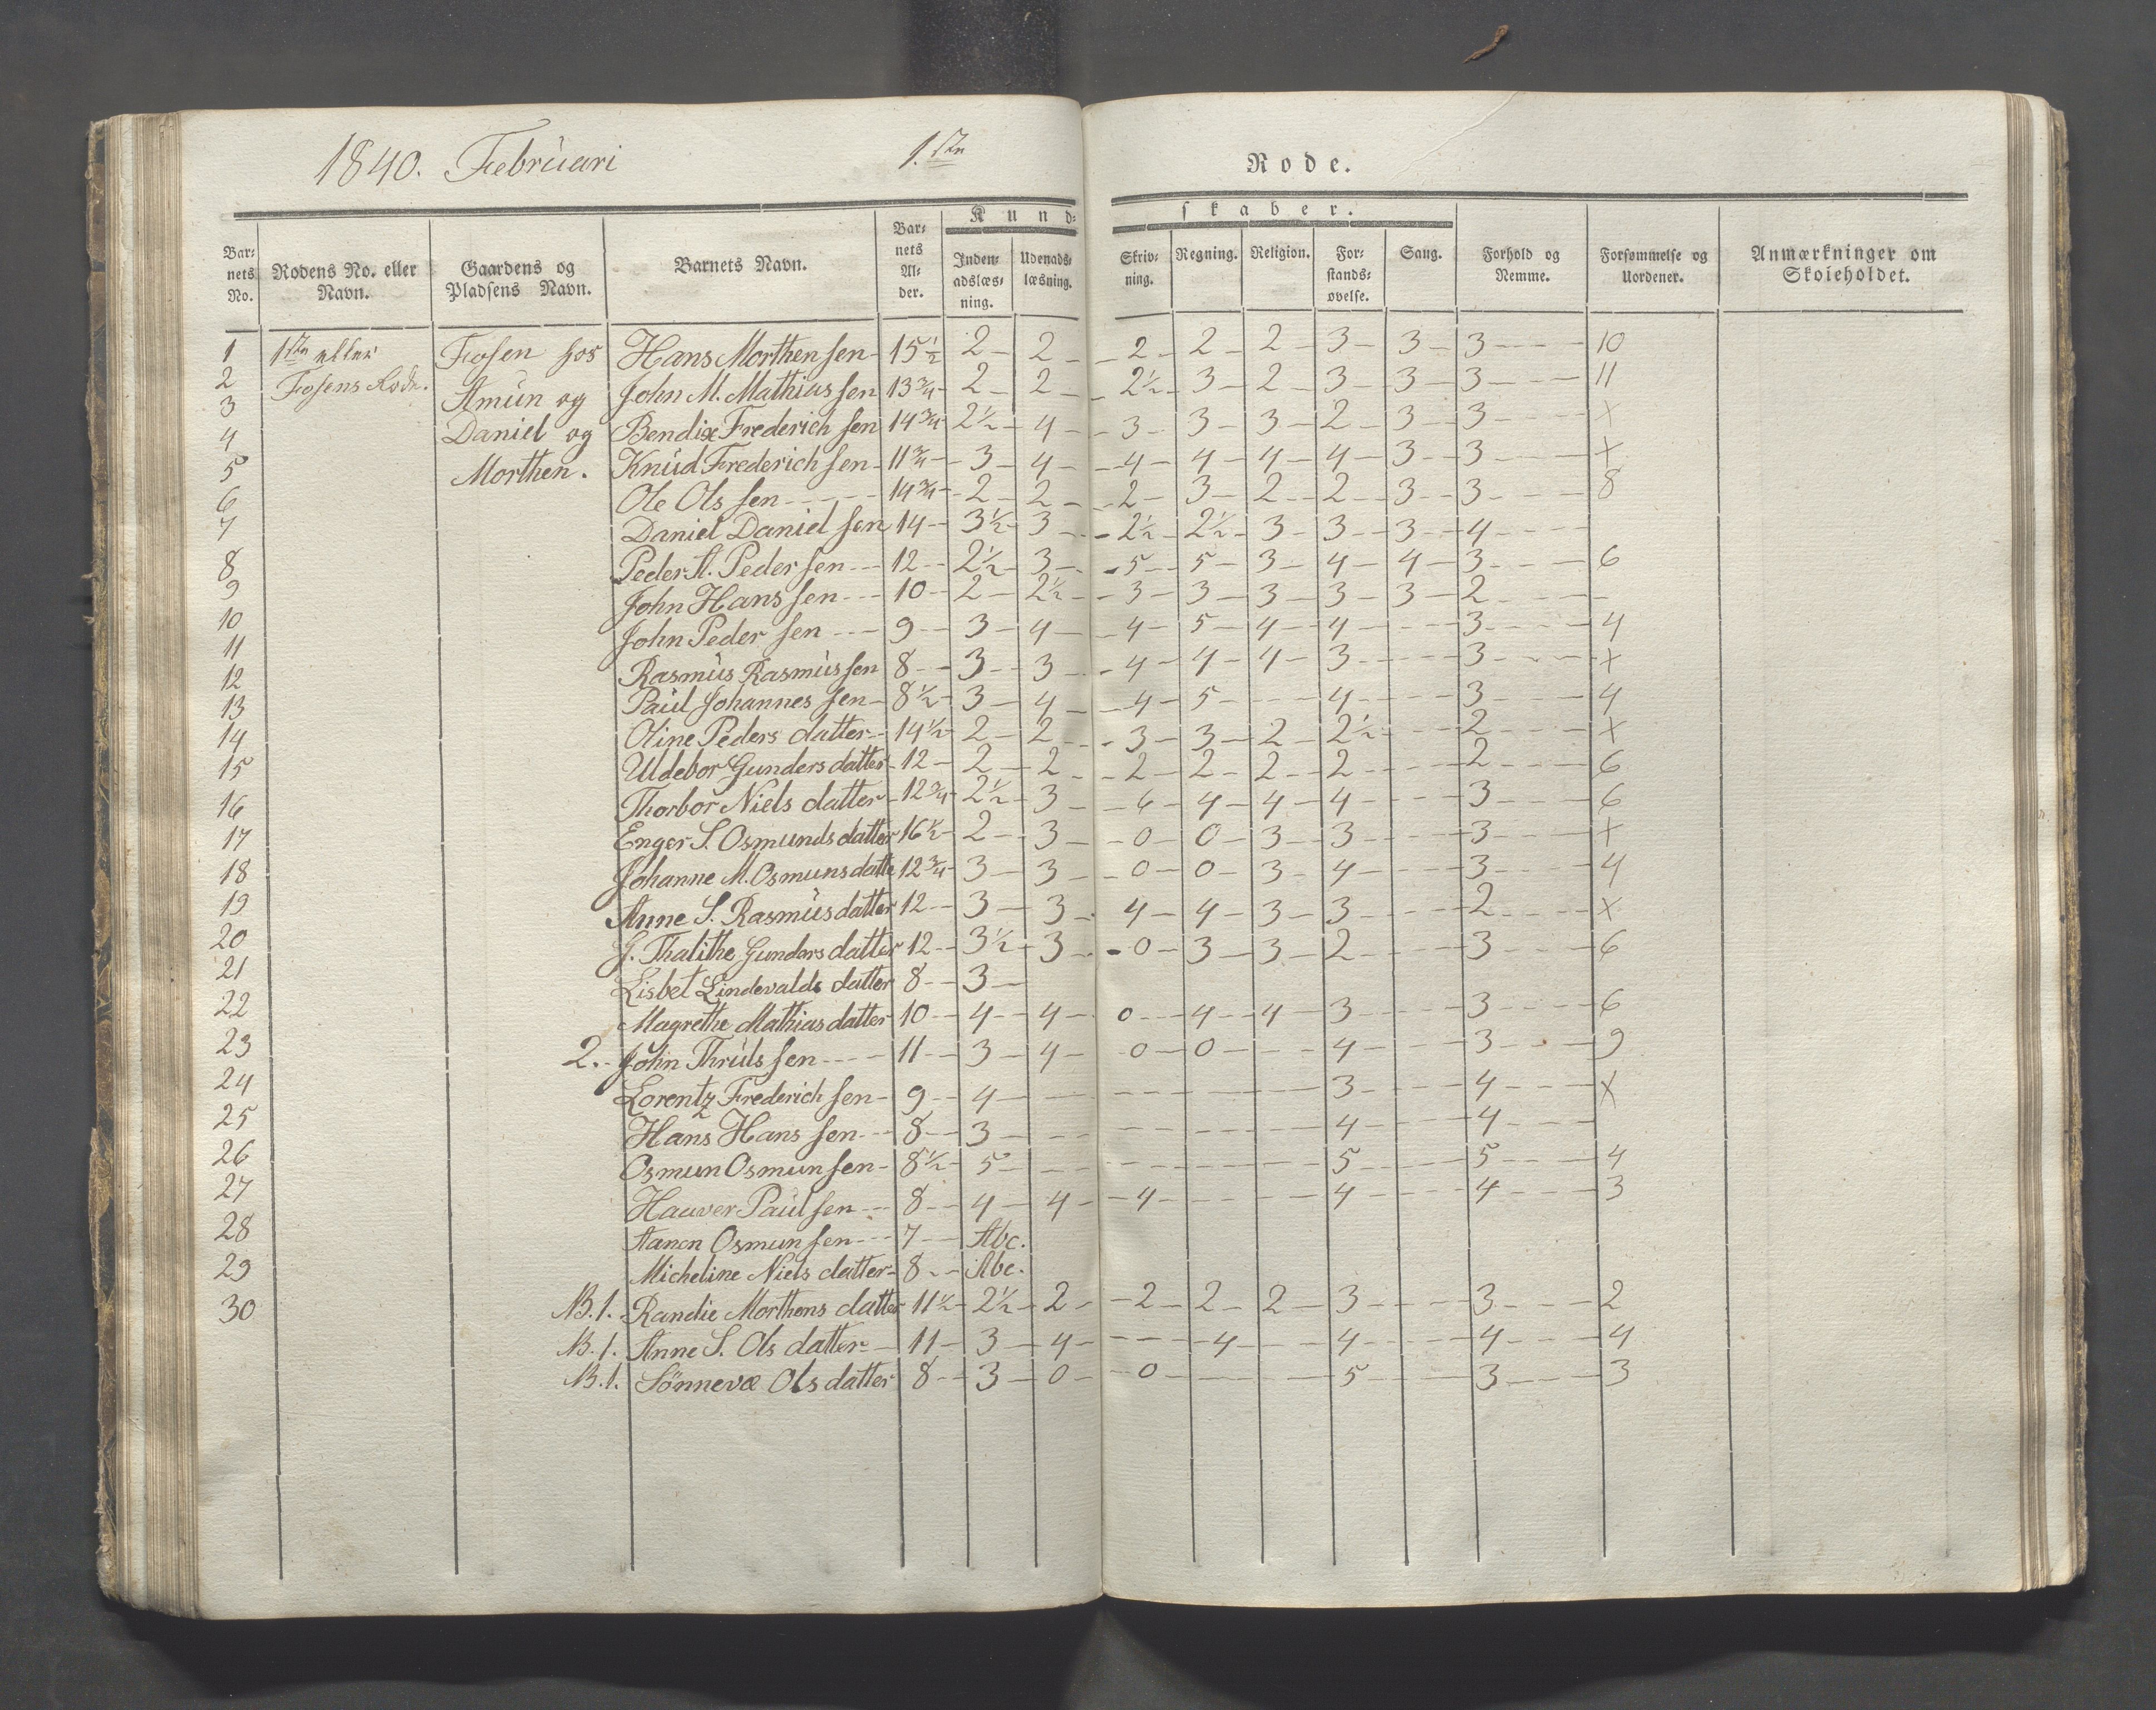 1840. Februari 1.ste Rode.
Bar-nets No. | Rodens No. eller Navn. | Gaardens og Pladsens Navn. | Barnets Navn. | Bar-nets Al-der. | Kund-skaber. | Inden-adslæs-ning. | Udenads-læsning. | Skriv-ning. | Regning. | Religion. | For-stands-øvelse. | Sang. | Forhold og Nemme. | Forsømmelse og Uordener. | Anmærkninger om Skoleholdet.
1 | 1ste eller | Fosen hos | Hans Morthensen | 15½ | 2 | 2 | 2 | 2 | 2 | 3 | 3 | 3 | 10
2 | Fosens Rode. | Amun og | John M. Mathiassen | 13¾ | 2 | 2 | 2½ | 3 | 2 | 3 | 3 | 3 | 11
3 | Daniel og | Bendix Frederichsen | 14¾ | 2½ | 4 | 3 | 3 | 3 | 2 | 3 | 3 | x
4 | Morthen. | Knud Frederichsen | 11¾ | 3 | 4 | 4 | 4 | 4 | 4 | 3 | 3 | x
5 | Ole Olssen | 14¾ | 2 | 2 | 2 | 3 | 2 | 2 | 3 | 3 | 8
6 | Daniel Danielsen | 14 | 3½ | 3 | 2½ | 2½ | 3 | 3 | 3 | 4
7 | Peder A. Pedersen | 12 | 2½ | 3 | 5 | 5 | 3 | 4 | 4 | 3 | 6
8 | John Hanssen | 10 | 2 | 2½ | 3 | 3 | 3 | 3 | 3 | 2 | -
9 | John Pedersen | 9 | 3 | 4 | 4 | 5 | 4 | 4 | 3 | 4
10 | Rasmus Rasmussen | 8 | 3 | 3 | 4 | 4 | 4 | 3 | 3 | x
11 | Paul Johannessen | 8½ | 3 | 4 | 4 | 5 | - | 4 | 3 | 4
12 | Oline Pedersdatter | 14½ | 2 | 2 | 3 | 3 | 2 | 2½ | 2 | x
13 | Uldebor Gundersdatter | 12 | 2 | 2 | 2 | 2 | 2 | 2 | 2 | 6
14 | Thorbor Nielsdatter | 12¾ | 2½ | 3 | 6 | 4 | 4 | 4 | 3 | 6
15 | Enger S. Osmundsdatter | 16½ | 2 | 3 | 0 | 0 | 3 | 3 | 3 | x
16 | Johanne M. Osmunsdatte | 12¾ | 3 | 3 | 0 | 0 | 3 | 4 | 3 | 4
17 | Anne S. Rasmusdatter | 12 | 3 | 3 | 4 | 4 | 3 | 3 | 2 | x
18 | G. Thalithe Gundersdatter | 12 | 3½ | 3 | 0 | 3 | 3 | 2 | 3 | 6
19 | Lisbet Lindevaldsdatter | 8 | 3
20 | Magrethe Mathiasdatter | 10 | 4 | 4 | 0 | 4 | 4 | 3 | 3 | 6
21 | 2. John Thrulssen | 11 | 3 | 4 | 0 | 0 | - | 4 | 3 | 9
22 | Lorentz Frederichsen | 9 | 4 | - | - | - | - | 3 | 4 | x
23 | Hans Hanssen | 8 | 3 | - | - | - | - | 4 | 4
24 | Osmun Osmunsen | 8½ | 5 | - | - | - | - | 5 | 5 | 4
25 | Haaver Paulsen | 8 | 4 | 4 | 4 | - | - | 4 | 4 | 3
26 | Aanen Osmunsen | 7 | Abc.
27 | Micheline Nielsdatter | 8 | Abc.
28 | N.B. 1. Randie Morthensdatter | 11½ | 2½ | 2 | 2 | 2 | 2 | 3 | 3 | 2
29 | N.B. 1. Anne S. Olsdatter | 11 | 3 | 4 | - | 4 | - | 4 | 4 | 4
30 | N.B. 1. Sönnevæ Olsdatter | 8 | 3 | 0 | 0 | - | - | 5 | 3 | 3